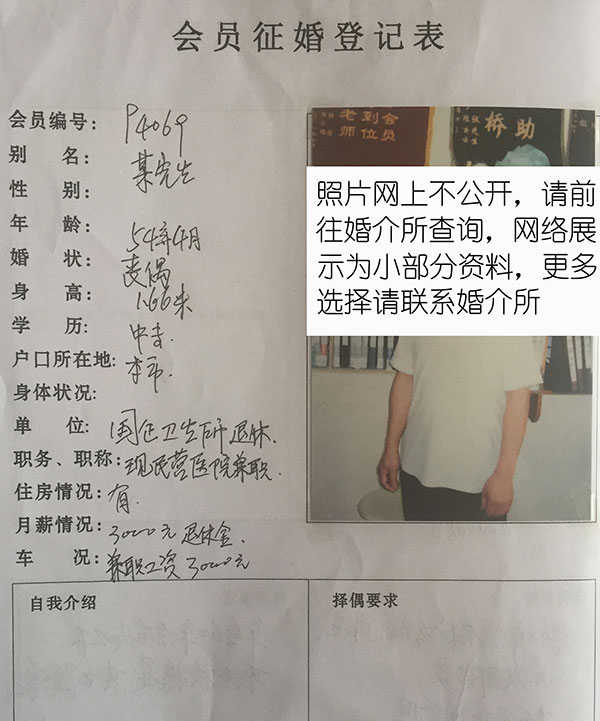 会员征婚登记表
会员编号: P4069
别 名: 某先生
性 别:
年 龄: 54年4月
婚 状: 丧偶
身 高: 1.66米
学 历: 中专.
户口所在地: 本市.
身体状况:
单 位: 国企卫生所退休.
职务、职称: 现民营医院兼职.
住房情况: 有.
月薪情况: 3000元退休金.
车 况: 兼职工资3000元
自我介绍
择偶要求
老 到会
师位员
助
桥
照片网上不公开，请前
往婚介所查询，网络展
示为小部分资料，更多
选择请联系婚介所